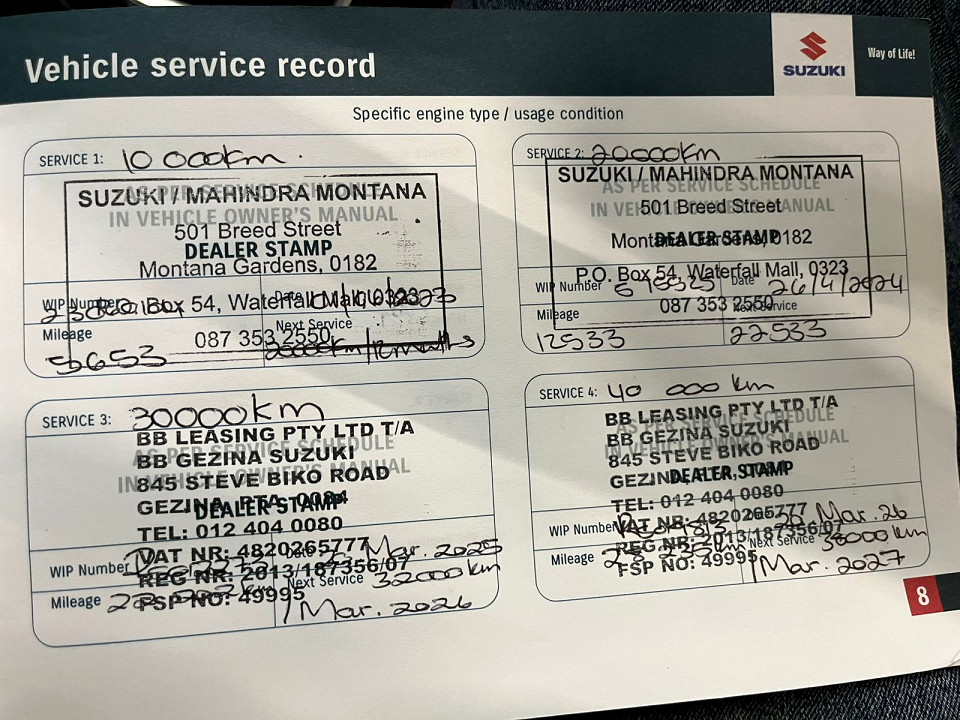 Vehicle service record
SUZUKI
Way of Life!
Specific engine type / usage condition
SERVICE 1: 10 000km
AS PER SERVICE SCHEDULE
IN VEHICLE OWNER'S MANUAL
DEALER STAMP
SUZUKI / MAHINDRA MONTANA
501 Breed Street
Montana Gardens, 0182
P.O. Box 54, Waterfall Mall, 0323
087 353 2550
WIP Number
Date
Mileage 5653
Next Service 20000km / 12 months
SERVICE 2: 20000km
AS PER SERVICE SCHEDULE
IN VEHICLE OWNER'S MANUAL
DEALER STAMP
SUZUKI / MAHINDRA MONTANA
501 Breed Street
Montana Gardens, 0182
P.O. Box 54, Waterfall Mall, 0323
087 353 2550
WIP Number
Date 26/4/2024
Mileage 12533
Next Service 22533
SERVICE 3: 30000km
AS PER SERVICE SCHEDULE
IN VEHICLE OWNER'S MANUAL
DEALER STAMP
BB LEASING PTY LTD T/A
BB GEZINA SUZUKI
845 STEVE BIKO ROAD
GEZINA, PTA, 0084
TEL: 012 404 0080
VAT NR: 4820265777
REG NR: 2013/187356/07
FSP NO: 49995
WIP Number
Date Mar. 2025
Mileage
Next Service 32000km
1 Mar. 2026
SERVICE 4: 40 000 km
AS PER SERVICE SCHEDULE
IN VEHICLE OWNER'S MANUAL
DEALER STAMP
BB LEASING PTY LTD T/A
BB GEZINA SUZUKI
845 STEVE BIKO ROAD
GEZINA
TEL: 012 404 0080
VAT NR: 4820265777
REG NR: 2013/187356/07
FSP NO: 49995
WIP Number
Mar. 26
Mileage
Next Service 38000km
1 Mar. 2027
8